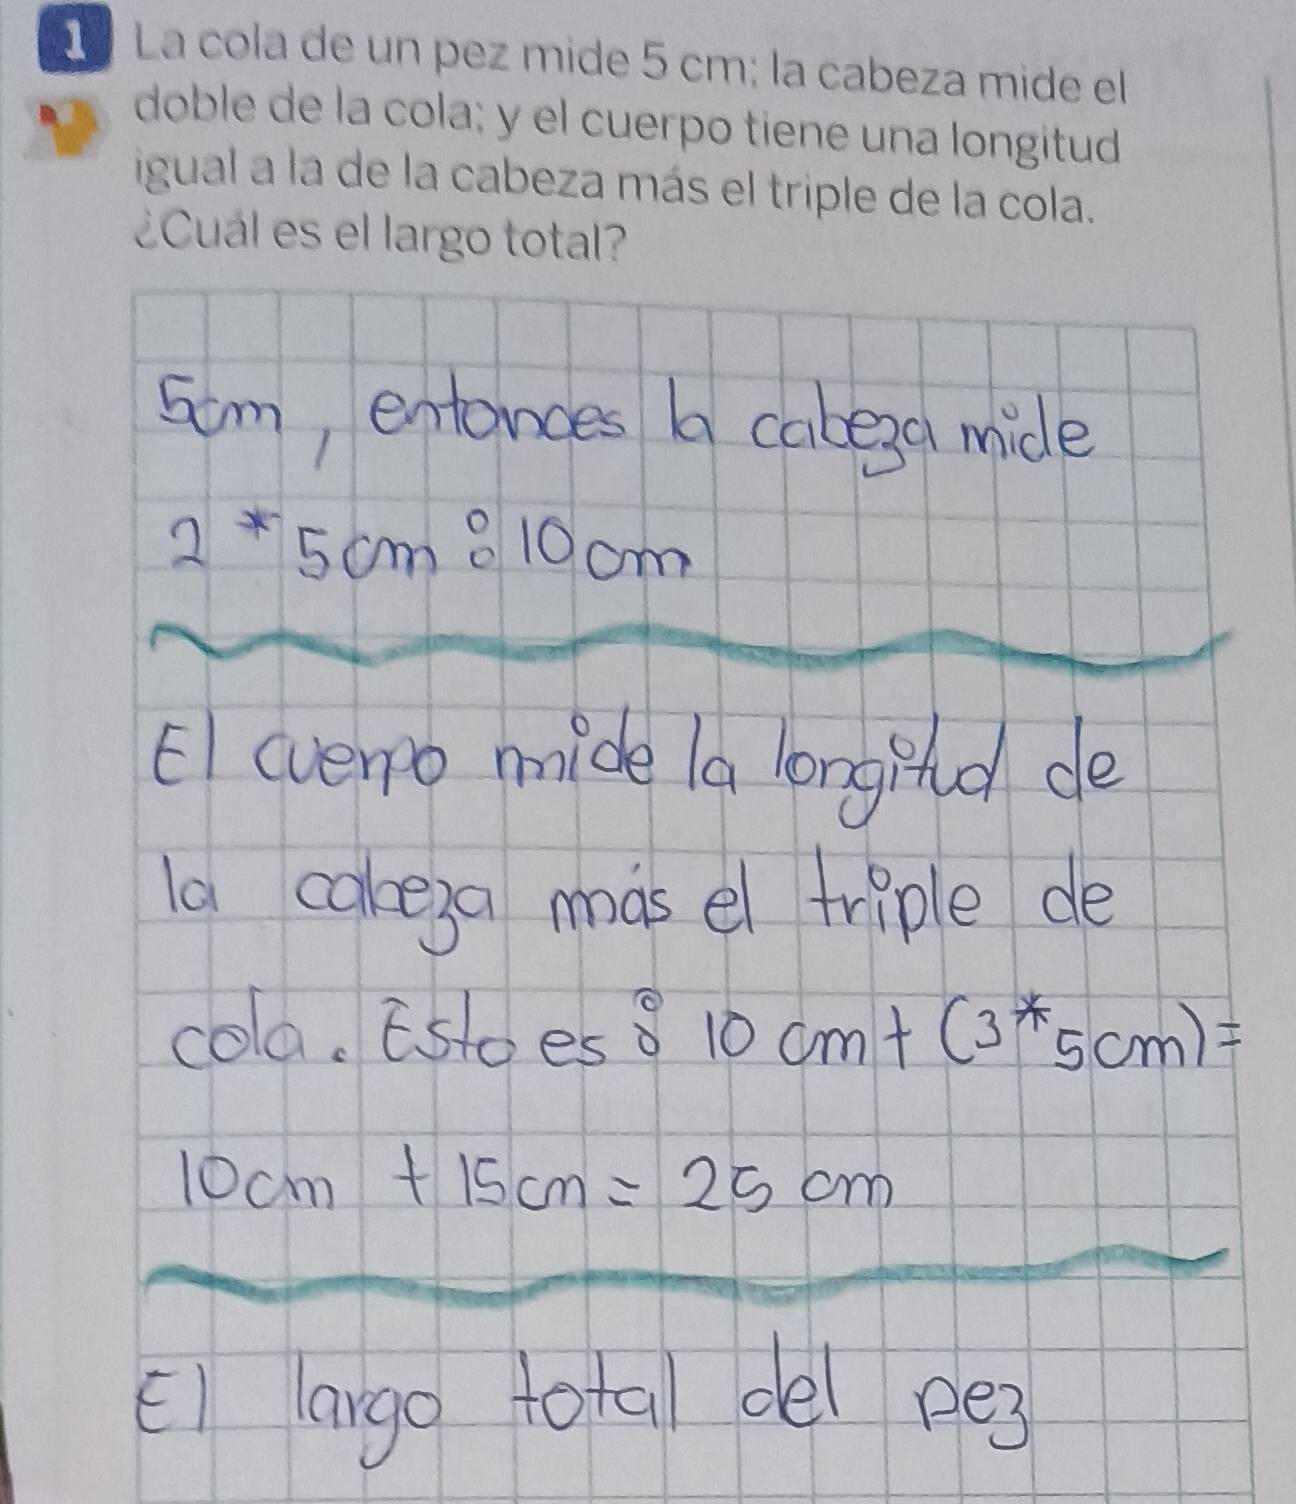 1 La cola de un pez mide 5 cm; la cabeza mide el
doble de la cola; y el cuerpo tiene una longitud
igual a la de la cabeza más el triple de la cola.
¿Cuál es el largo total?
5cm, entonces la cabeza mide
2 * 5 cm : 10 cm
El cuerpo mide la longitud de
la cabeza más el triple de
cola. Esto es : 10 cm + (3 * 5 cm) =
10 cm + 15 cm = 25 cm
El largo total del pez